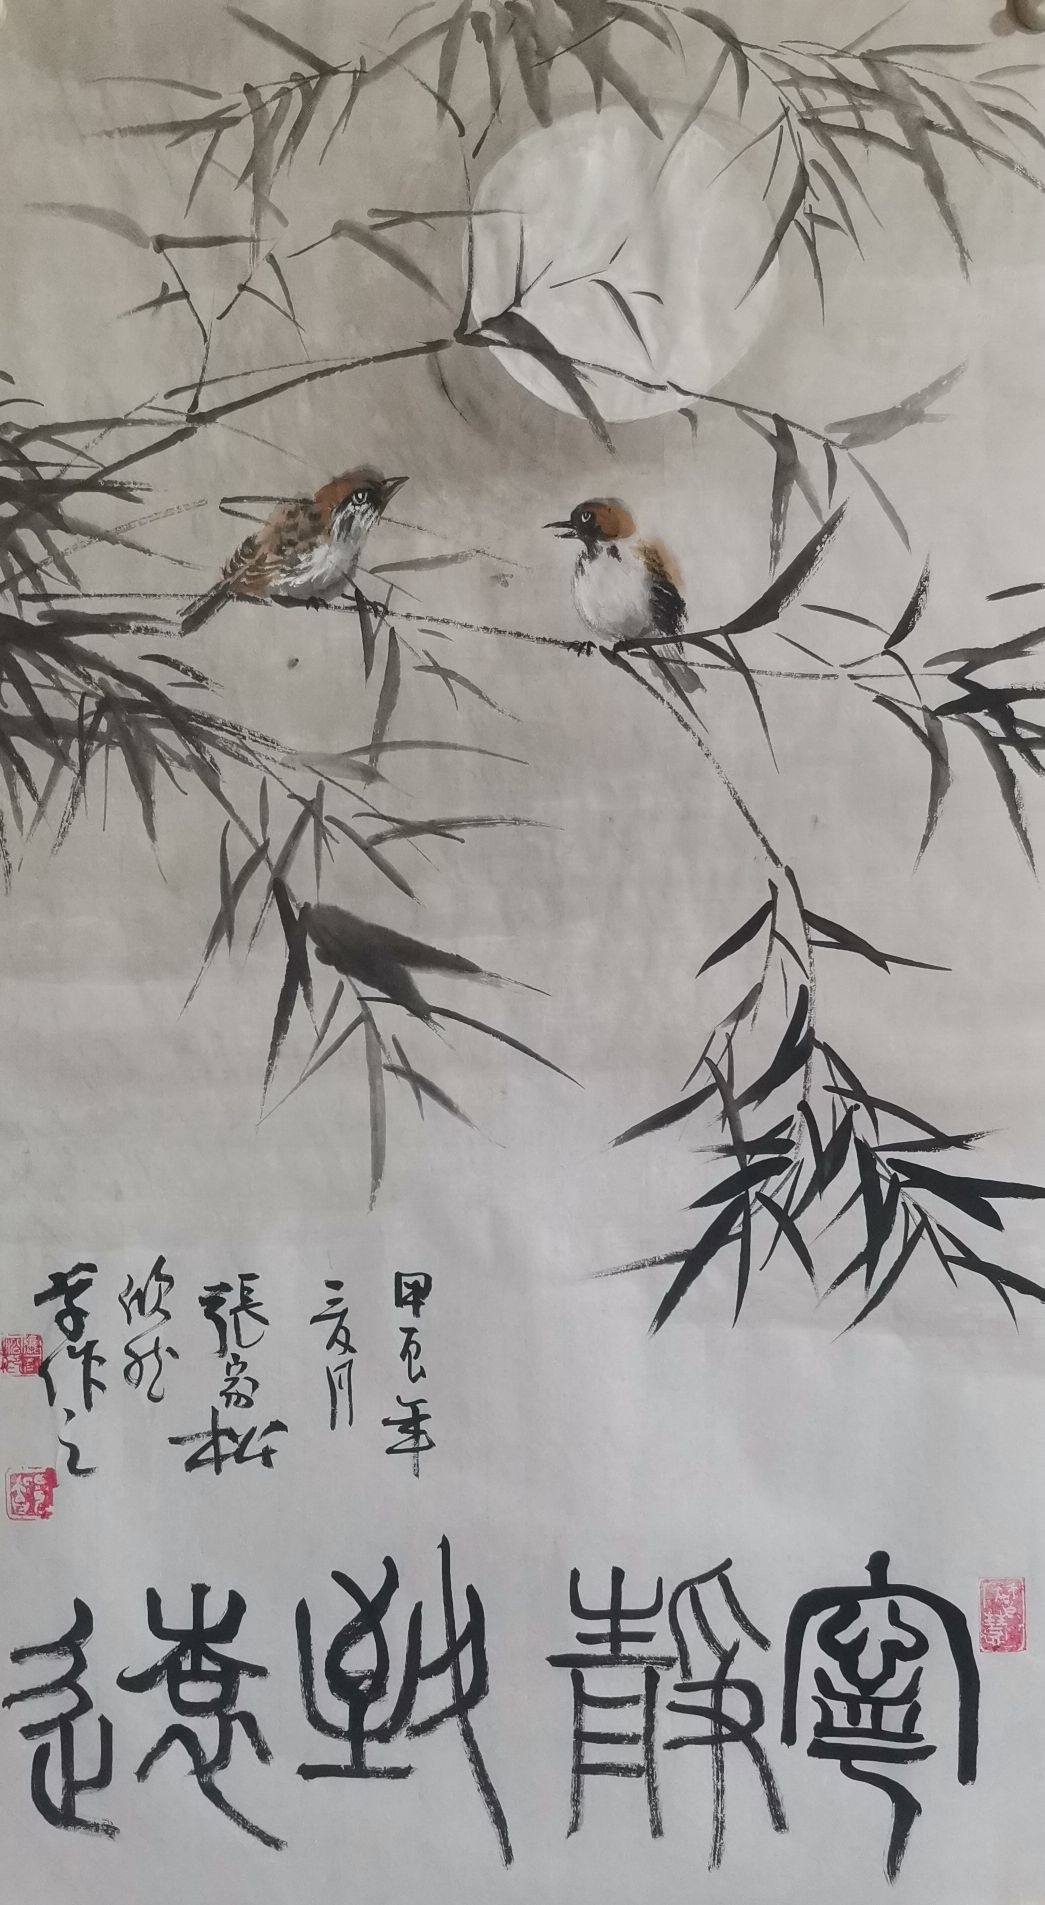 甲辰年
三月
張家松
欣然
草作之
寧靜致遠